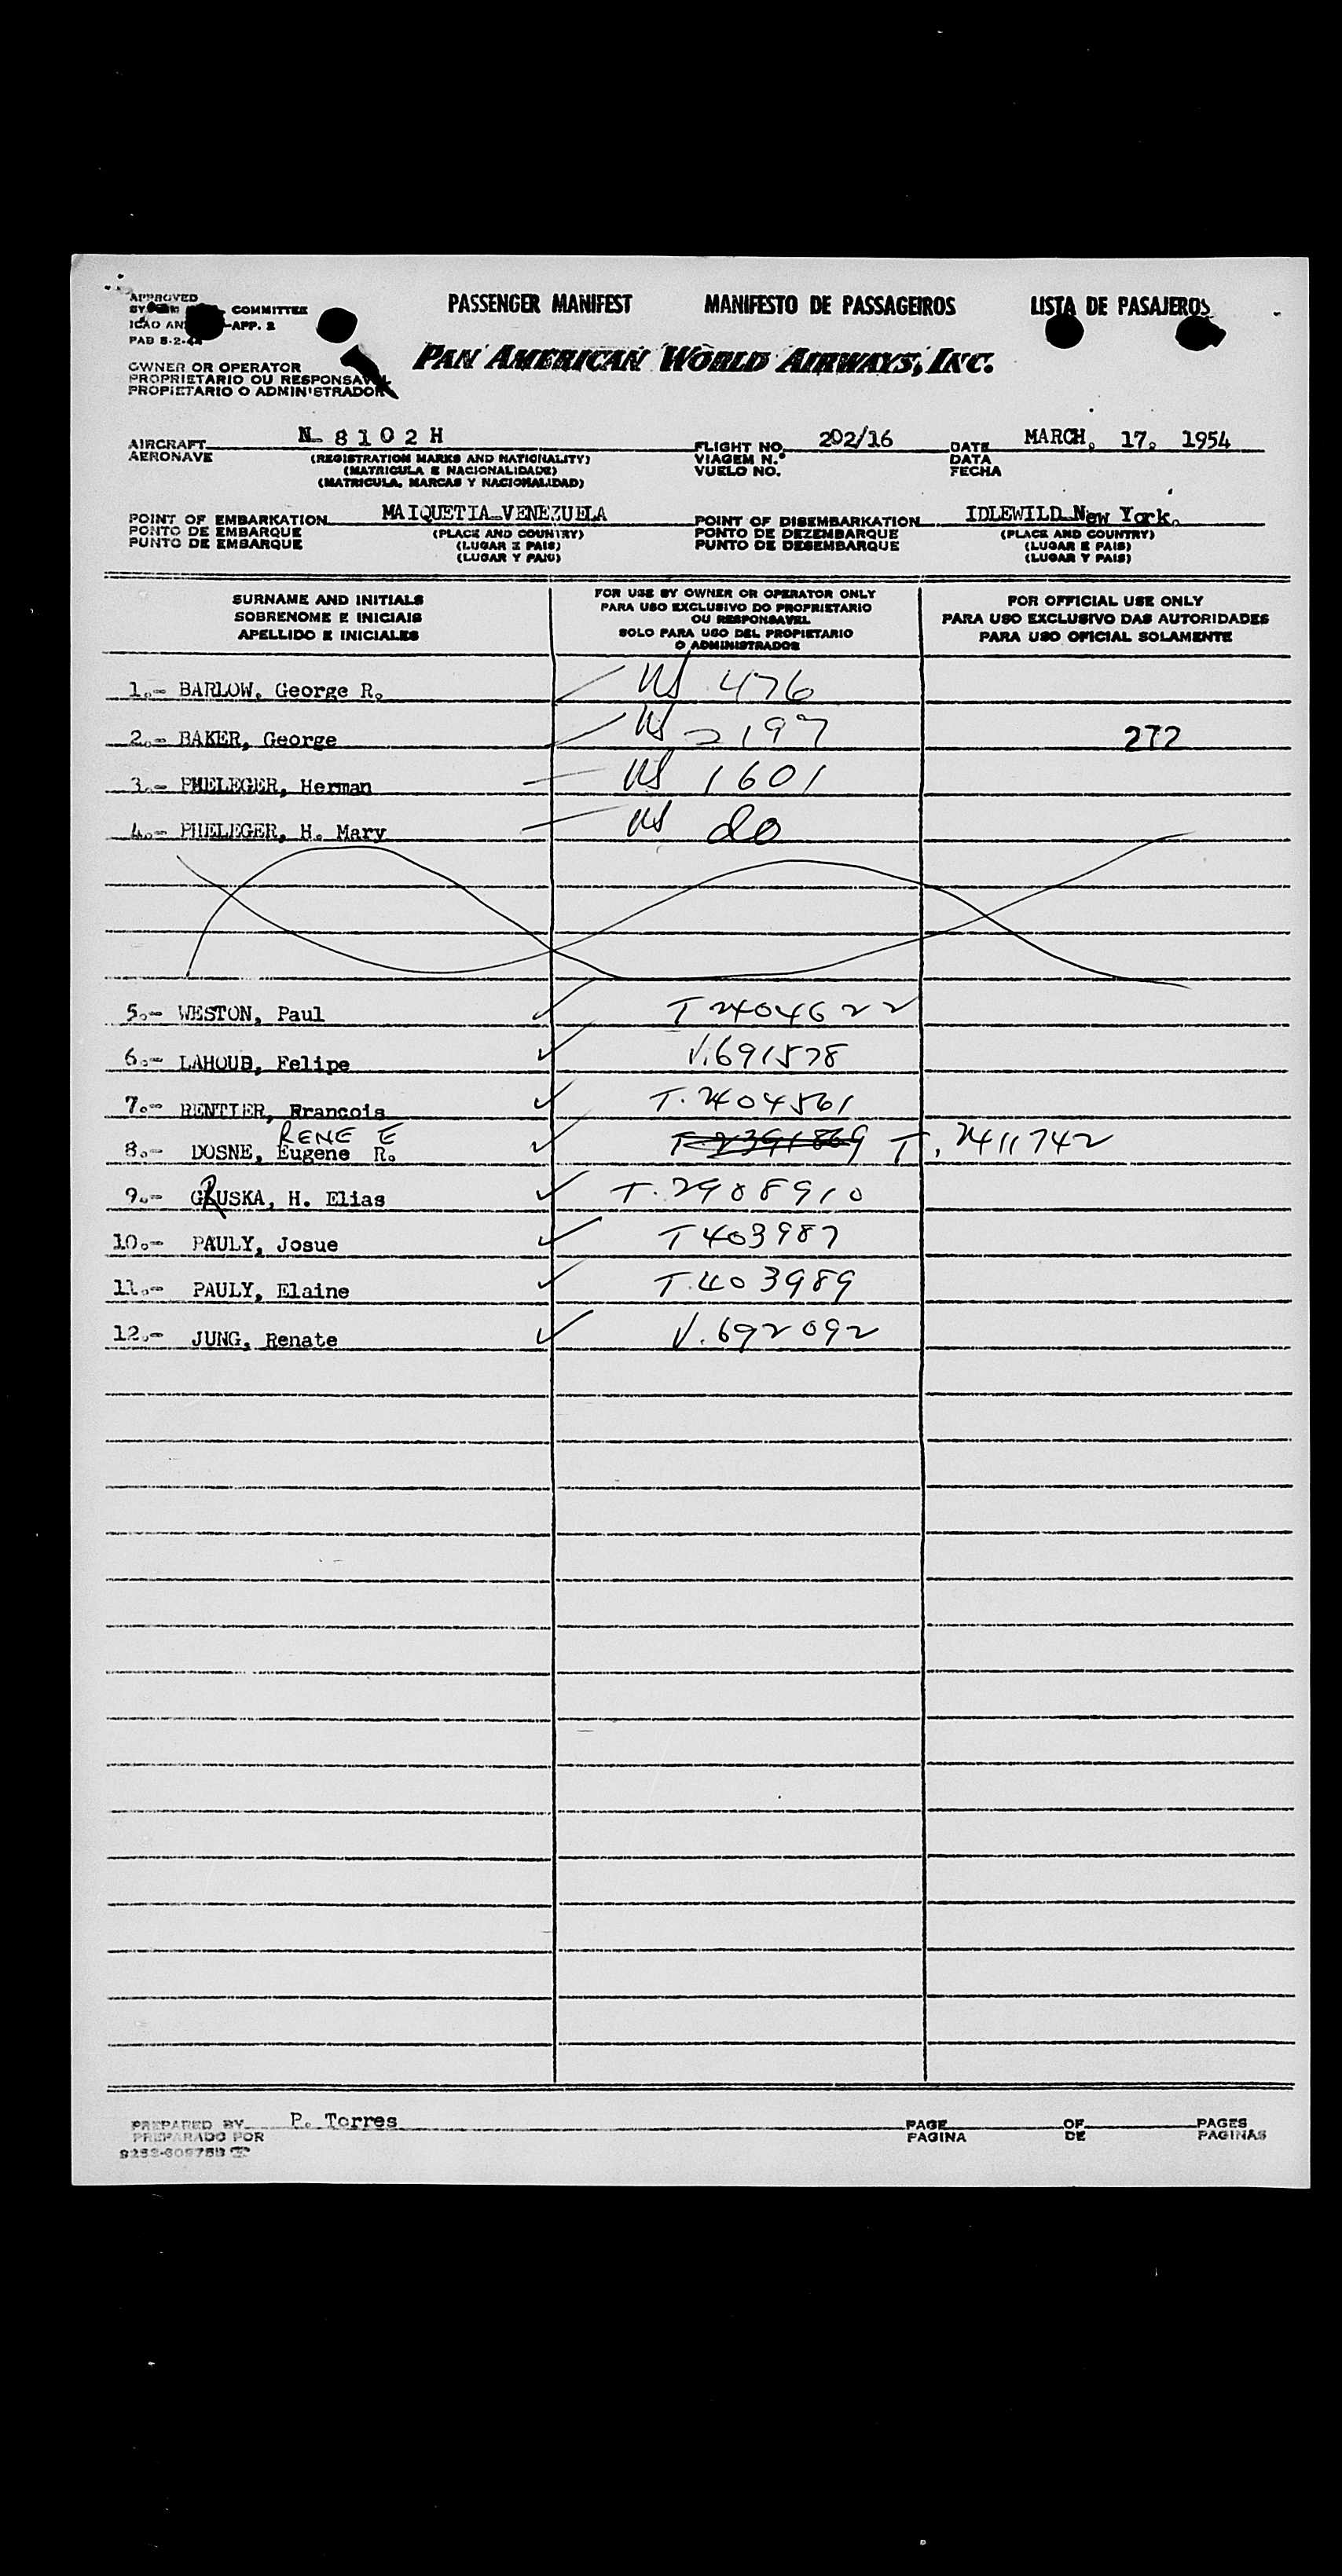 APPROVED
BY COMMITTEE
ICAO AN -APP. 2
PAD 8-2-44
PASSENGER MANIFEST MANIFESTO DE PASSAGEIROS LISTA DE PASAJEROS
PAN AMERICAN WORLD AIRWAYS, INC.
OWNER OR OPERATOR
PROPRIETARIO OU RESPONSAVEL
PROPIETARIO O ADMINISTRADOR
AIRCRAFT N-8102H FLIGHT NO. 202/16 DATE MARCH, 17, 1954
AERONAVE (REGISTRATION MARKS AND NATIONALITY) VIAGEM N.° DATA
(MATRICULA E NACIONALIDADE) VUELO NO. FECHA
(MATRICULA, MARCAS Y NACIONALIDAD)
POINT OF EMBARKATION MAIQUETIA-VENEZUELA POINT OF DISEMBARKATION IDLEWILD New York.
PONTO DE EMBARQUE (PLACE AND COUNTRY) PONTO DE DEZEMBARQUE (PLACE AND COUNTRY)
PUNTO DE EMBARQUE (LUGAR E PAIS) PUNTO DE DESEMBARQUE (LUGAR E PAIS)
(LUGAR Y PAIS) (LUGAR Y PAIS)
SURNAME AND INITIALS
SOBRENOME E INICIAIS
APELLIDO E INICIALES
FOR USE BY OWNER OR OPERATOR ONLY
PARA USO EXCLUSIVO DO PROPRIETARIO
OU RESPONSAVEL
SOLO PARA USO DEL PROPIETARIO
O ADMINISTRADOR
FOR OFFICIAL USE ONLY
PARA USO EXCLUSIVO DAS AUTORIDADES
PARA USO OFICIAL SOLAMENTE
1.- BARLOW, George R. US 476
2.- BAKER, George US 2197 272
3.- PHELEGER, Herman US 1601
4.- PHELEGER, H. Mary US do
5.- WESTON, Paul T 2404622
6.- LAHOUD, Felipe V.691578
7.- RENTIER, Rrancois T.2404561
RENE E
8.- DOSNE, Eugene R. T.2391869 T.2411742
9.- GRUSKA, H. Elias T.2908910
10.- PAULY, Josue T 403987
11.- PAULY, Elaine T.403989
12.- JUNG, Renate V.692092
PREPARED BY P. Torres PAGE OF PAGES
PREPARADO POR PAGINA DE PAGINAS